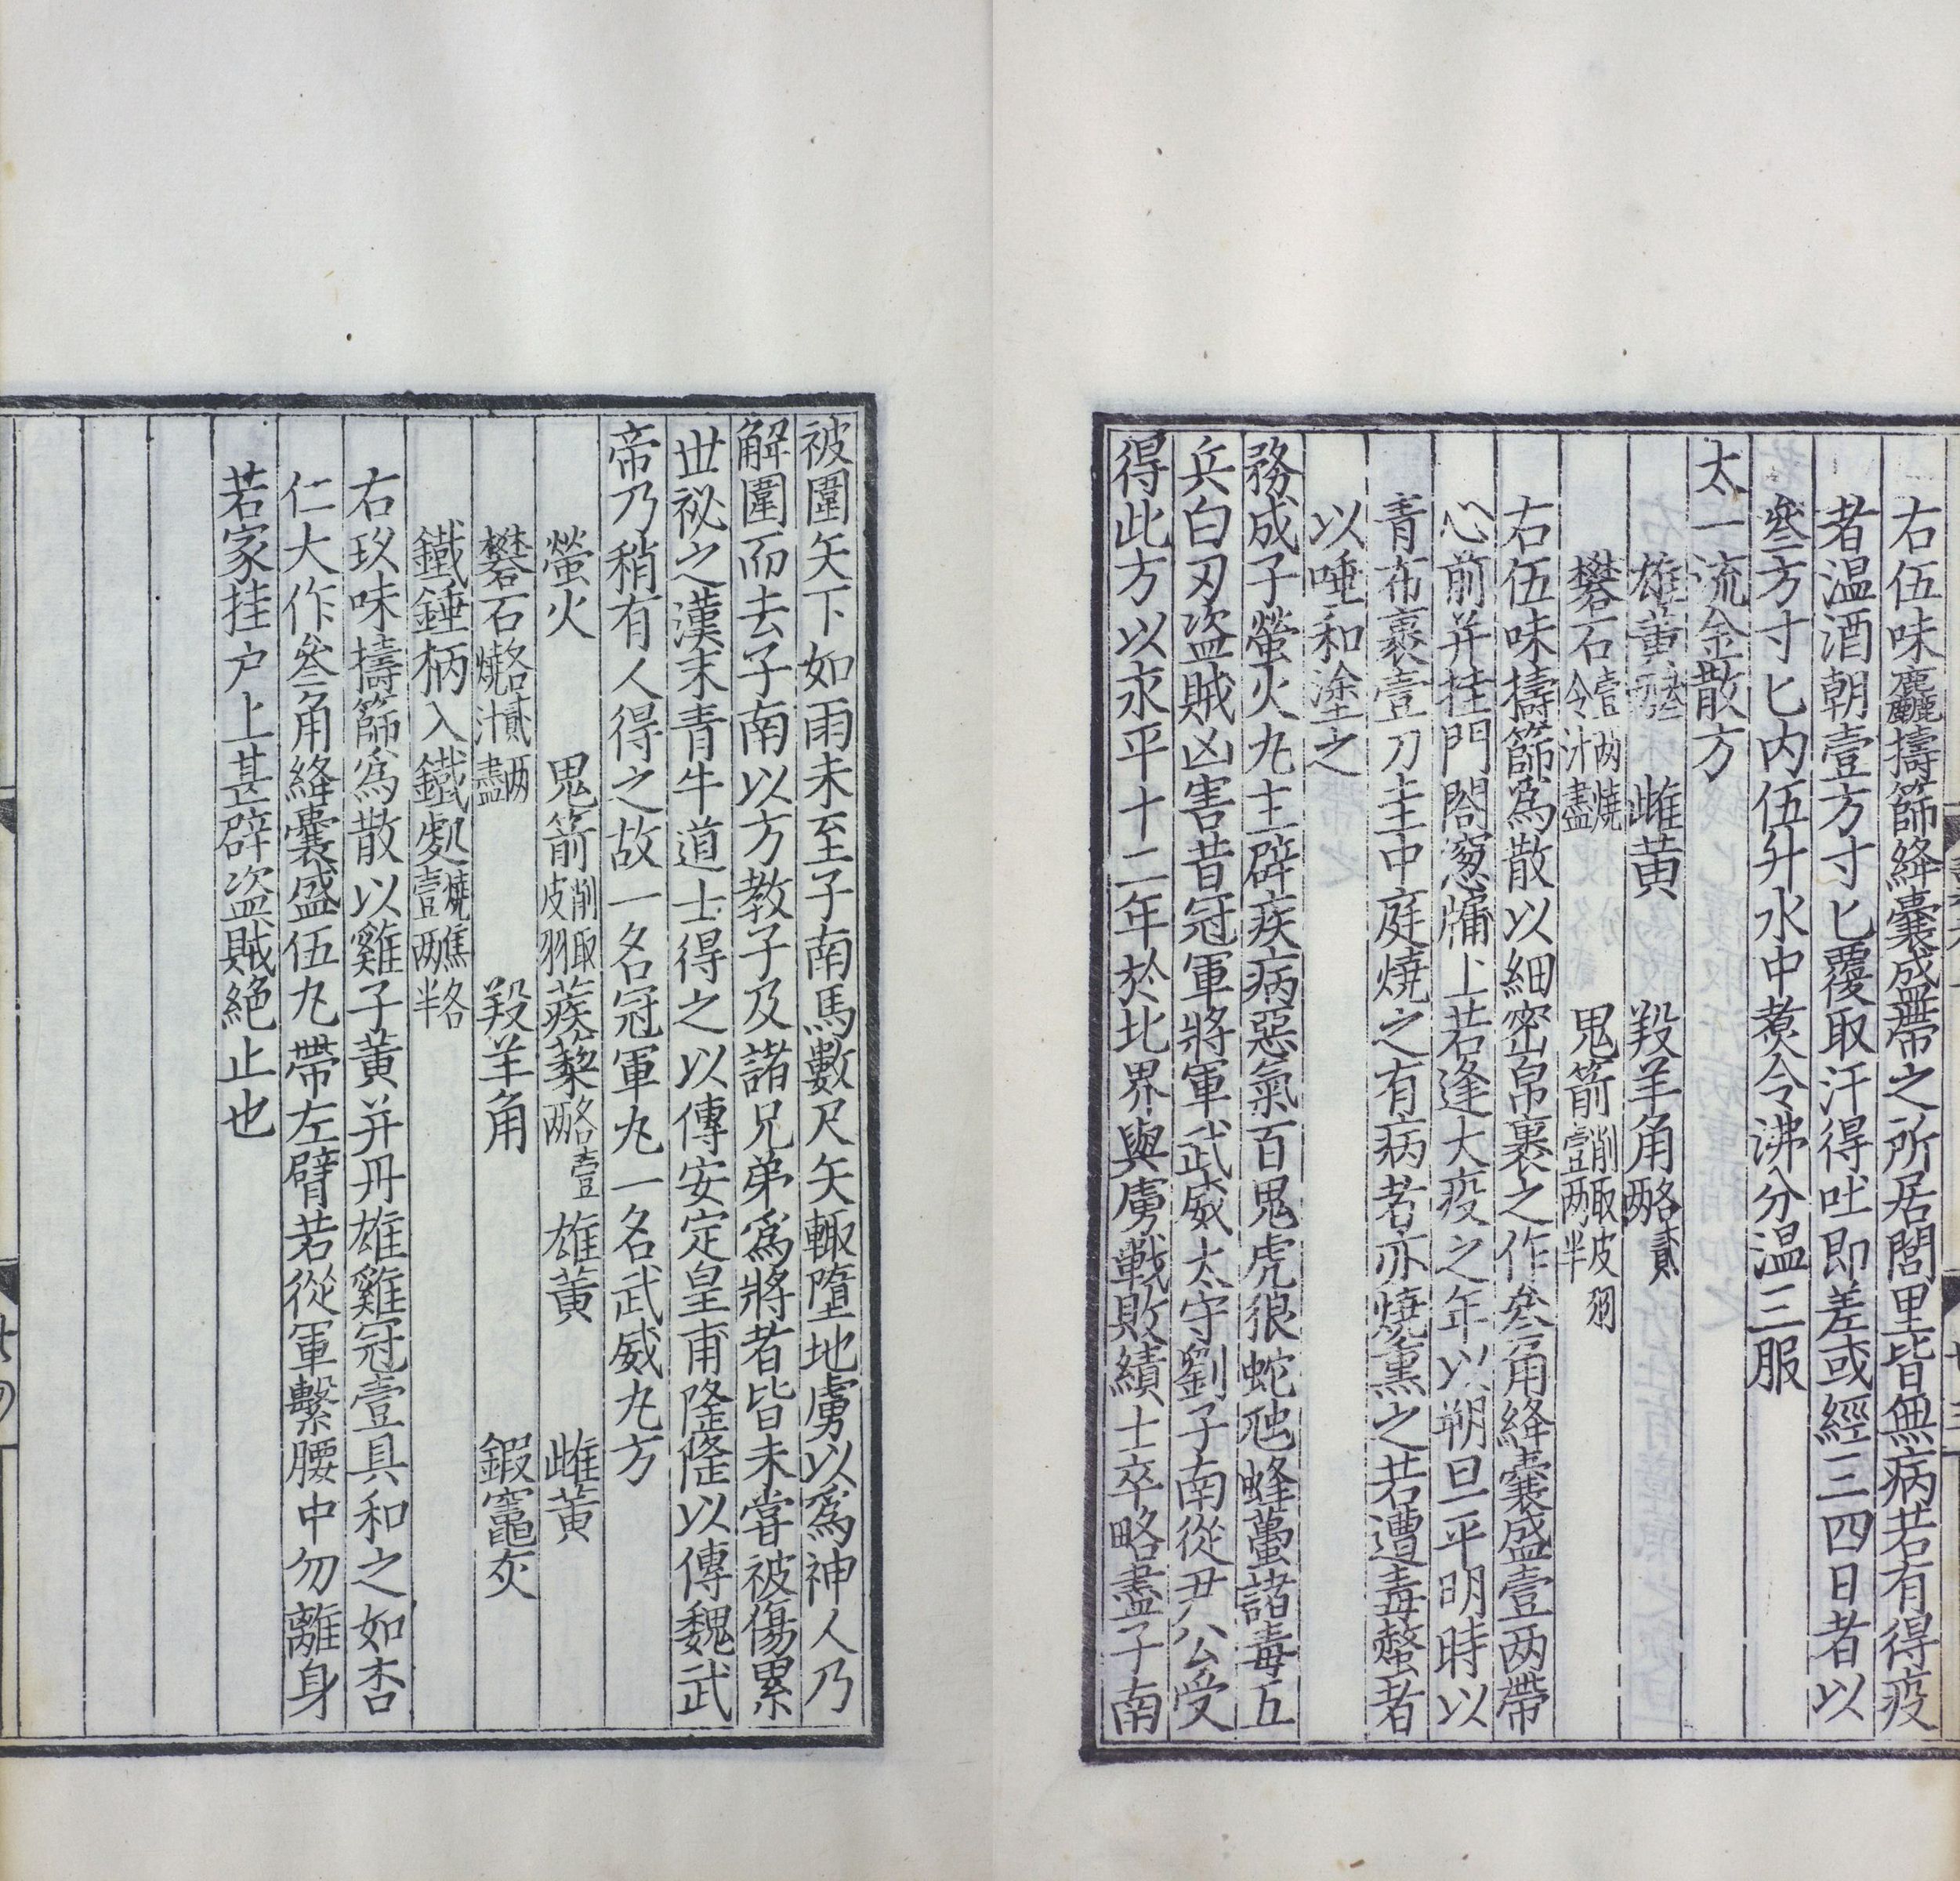 右伍味麤擣篩絳囊盛帶之所居閭里皆無病若有得疫
者温酒朝壹方寸匕覆取汗得吐即差或經三四日者以
叁方寸匕内伍升水中煮令沸分温三服
太一流金散方
雄黄叁两 雌黄 羖羊角各貳两
礬石壹两燒令汁盡 鬼箭削取皮羽壹两半
右伍味擣篩爲散以細密帛裹之作叁角絳囊盛壹两帶
心前并挂門閤窓牖上若逢大疫之年以朔旦平明時以
青布裹壹刀圭中庭燒之有病者亦燒熏之若遭毒螫者
以唾和塗之
務成子螢火丸主辟疾病惡氣百鬼虎狼蛇虺蜂蠆諸毒五
兵白刃盗賊凶害昔冠軍將軍武威太守劉子南從尹公受
得此方以永平十二年於北界與虜戰敗績士卒略盡子南
被圍矢下如雨未至子南馬數尺矢輙墮地虜以爲神人乃
解圍而去子南以方教子及諸兄弟爲將者皆未嘗被傷累
世祕之漢末青牛道士得之以傳安定皇甫隆隆以傳魏武
帝乃稍有人得之故一名冠軍丸一名武威丸方
螢火 鬼箭削取皮羽 蒺藜各壹两 雄黄 雌黄
礬石各貳两燒汁盡 羖羊角 鍛竈灰
鐵錘柄入鐵處燒焦各壹两半
右玖味擣篩爲散以雞子黄并丹雄雞冠壹具和之如杏
仁大作叁角絳囊盛伍丸帶左臂若從軍繫腰中勿離身
若家挂户上甚辟盗賊絶止也